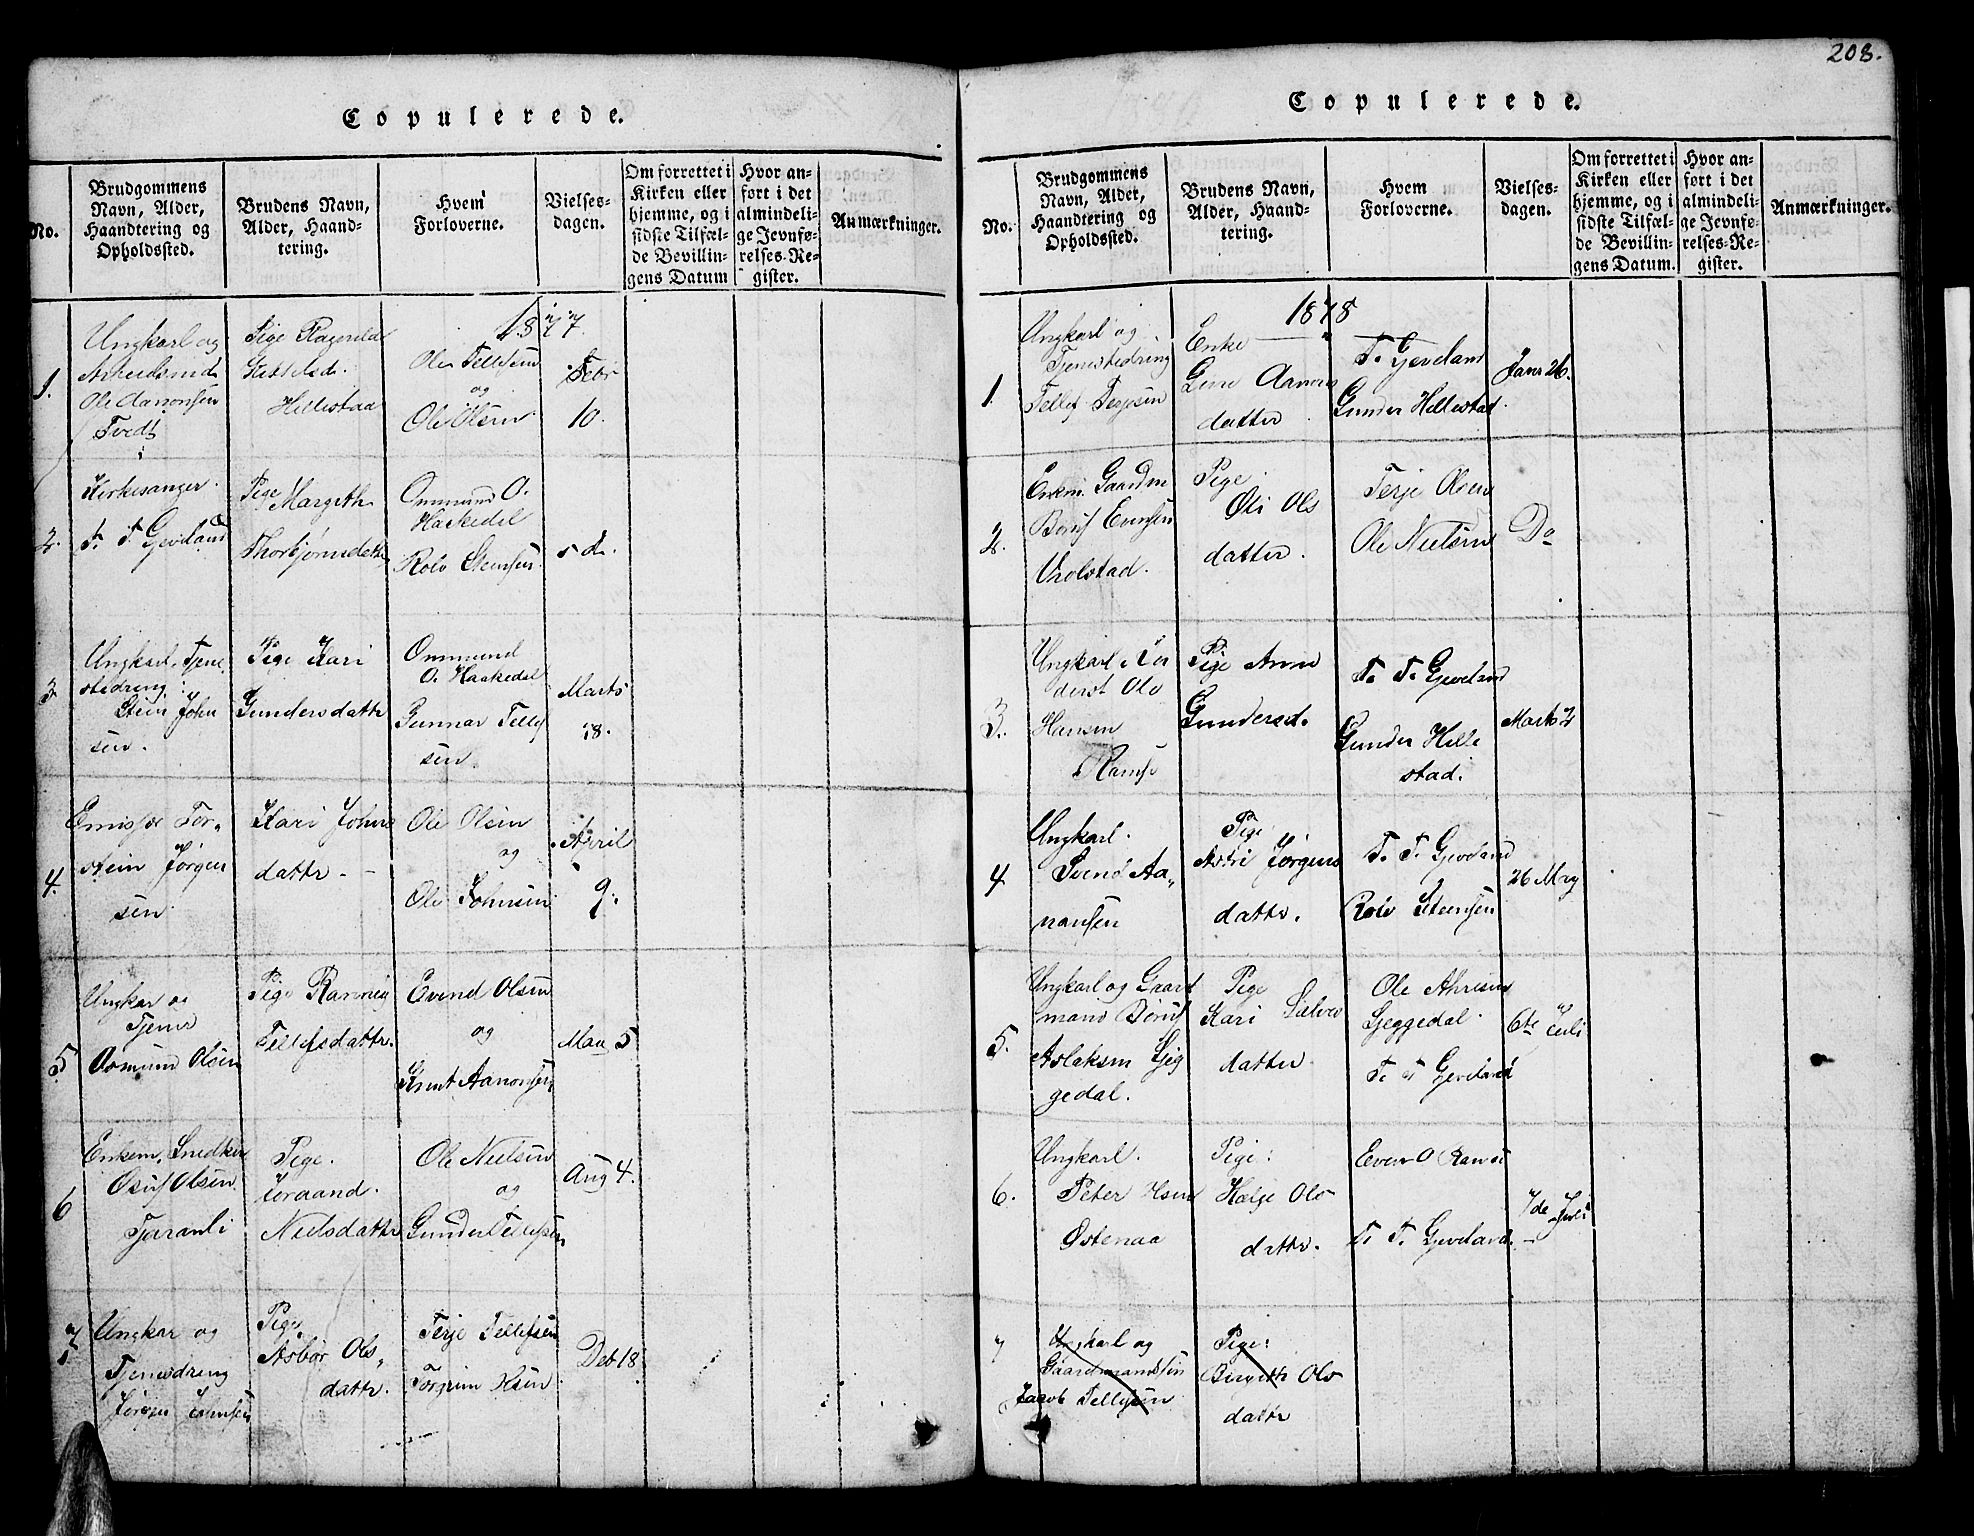 208.
Copulerede.
No.
Brudgommens
Navn, Alder,
Haandtering og
Opholdssted.
Brudens Navn,
Alder, Haand-
tering.
Hvem
Forloverne.
Vielses-
dagen.
Om forrettet i
Kirken eller
hjemme, og i
sidste Tilfæl-
de Bevillin-
gens Datum
Hvor an-
ført i det
almindeli-
ge Jevnfø-
relses-Re-
gister.
Anmærkninger.
1877.
1.
Ungkarl og
Arbeidsmd
Ole Aanonsen
Tvedt
Pige Ragnild
Kittelsd.
Hillestad
Ole Tellefsen
og
Ole Olsen
Febr
10.
2.
Kirkesanger
T. T. Gjeveland
Pige Margith
Thorbjørnsdattr
Ommund O.
Haskedal
Rolv Steensen
3
Ungkarl, Tjene
stedreng
Stein John
sen.
Pige Kari
Gundersdattr
Ommund
O. Haskedal
Gunnar Tellef
sen
Marts
18.
4.
Tor-
stein Jørgen
sen
Kari Johns
dattr. -
Ole Olsen
og
Ole Johnsen
April
9.
5.
Ungkar og
Tjener
Osmund Olsen
Pige Ranveig
Tellefsdattr.
Eivind Olsen
og
Knut Aanonsen
Mau 5
6
Enkem. Snedker
Osuf Olsen
Tjaranli
Pige.
Joraand.
Nielsdattr
Ole Nielsen
og
Gunder Tellefsen
Aug 4.
7.
Ungkar og
Tjenesdreng
Jørgen Johnsen
Pige,
Asbør Ols-
dattr.
Terje Tellefsen
Torgrim Hsen
Deb 18
Copulerede.
No.
Brudgommens
Navn, Alder,
Haandtering og
Opholdssted.
Brudens Navn,
Alder, Haand-
tering.
Hvem
Forloverne.
Vielses-
dagen.
Om forrettet i
Kirken eller
hjemme, og i
sidste Tilfæl-
de Bevillin-
gens Datum.
Hvor an-
ført i det
almindeli-
ge Jevnfø-
relses-Re-
gister.
Anmærkninger.
1878
1.
Ungkarl og
Tjenestedreng
Tellef Terjesen
Enke
Aanons
datter
T. Gjeveland
Gunder Hillestad.
Janr 26.
2.
Enkm. Gaardm
Børuf Evensen
Vrolstad.
Pige
Oli Ols
datter.
Terje Olsen
Ole Nielsen
Do
3.
Ungkarl
Olv
Hansen
Ramse
Pige Anne
Gundersd.
T. T. Gjeveland
Gunder Hille
stad.
Marts 2
4
Ungkarl.
Svend Aa-
nansen
Pige
Astri Jørgens
dattr.
T. T. Gjeveland
Rolv Steensen
26 May
5.
Ungkarl og Gaard
mand Børuf
Aslaksen Ljøg
gedal.
Pige
Kari Salves
datter
Ole Ahresen
Sjeggedal.
T. T. Gjeveland
6te Juli
6.
Ungkarl.
Peter Hsen
Østenaa
Pige:
Helje Ols
dattr.
Even O Ramse
T. T. Gjeveland.
7de Juli
7
Ungkarl og
Gaardmandssøn
Jacob Tellefsen
Pige:
Birgitte Ols
dattr